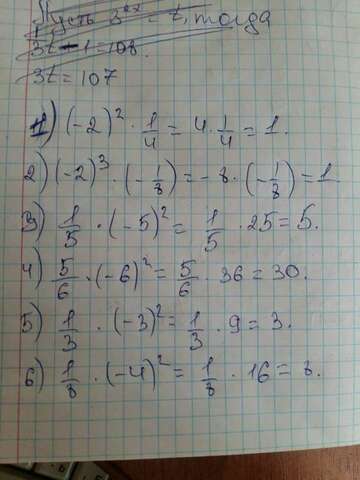 Пусть 3^2x = t, тогда
3t - 1 = 108.
3t = 107
1) (-2)² · 1/4 = 4 · 1/4 = 1.
2) (-2)³ · (-1/8) = -8 · (-1/8) = 1
3) 1/5 · (-5)² = 1/5 · 25 = 5.
4) 5/6 · (-6)² = 5/6 · 36 = 30.
5) 1/3 · (-3)² = 1/3 · 9 = 3.
6) 1/8 · (-4)² = 1/8 · 16 = 8.